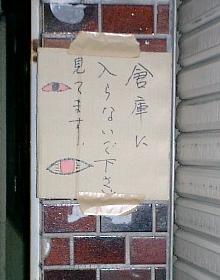 倉庫に
入らないで下さい
見てます．